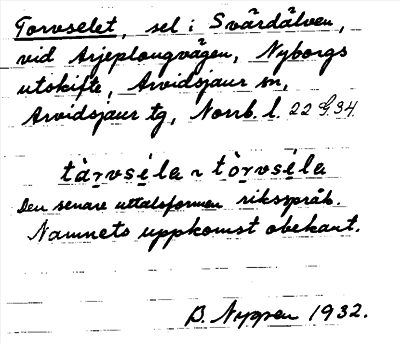 Torvselet, sel i Svärdälven,
vid Arjeplougvägen, Nyborgs
utskifte, Arvidsjaur sn,
Arvidsjaur tg, Norrb. l. 22 G. 34.
tà̱rvsé̱la ~ tò̱rvsé̱la
Den senare uttalsformen riksspråk.
Namnets uppkomst obekant.
B. Nygren 1932.